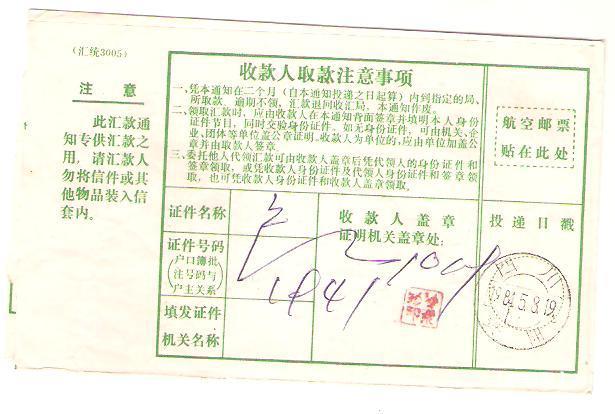 （汇统3005）
注 意
此汇款通
知专供汇款之
用，请汇款人
勿将信件或其
他物品装入信
套内。
收款人取款注意事项
一、凭本通知在二个月（自本通知投递之日起算）内到指定的局、
所取款。逾期不领，汇款退回收汇局，本通知作废。
二、领取汇款时，应由收款人在本通知背面签章并填明本人身份
证件节目，同时交验身份证件。如无身份证件，可由机关、企
业、团体等单位盖公章证明。收款人为单位的，应由单位加盖公
章并由取款人签章。
三、委托他人代领汇款可由收款人盖章后凭代领人的身份证件和
签章领取，或凭收款人身份证件及代领人身份证件和签章领
取，也可凭收款人身份证件和收款人盖章领取。
航空邮票
贴在此处
证件名称
收款人盖章
证明机关盖章处：
投递日戳
证件号码
（户口簿批
注号码与
户主关系）
填发证件
机关名称
84.5.8.19